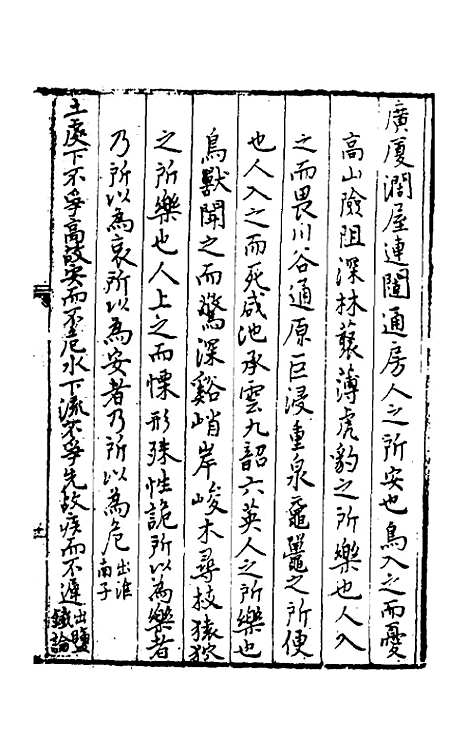 廣厦濶屋連闥通房人之所安也鳥入之而憂
高山險阻深林蘩薄虎豹之所樂也人入
之而畏川谷通原巨浸重泉黿鼉之所便
也人入之而死咸池承雲九韶六英人之所樂也
鳥獸聞之而驚深谿峭岸峻木尋枝猿狖
之所樂也人上之而慄形殊性詭所以為樂者
乃所以為哀所以為安者乃所以為危出淮南子
土處下不爭高故安而不危水下流不爭先故疾而不遲出鹽鐵論